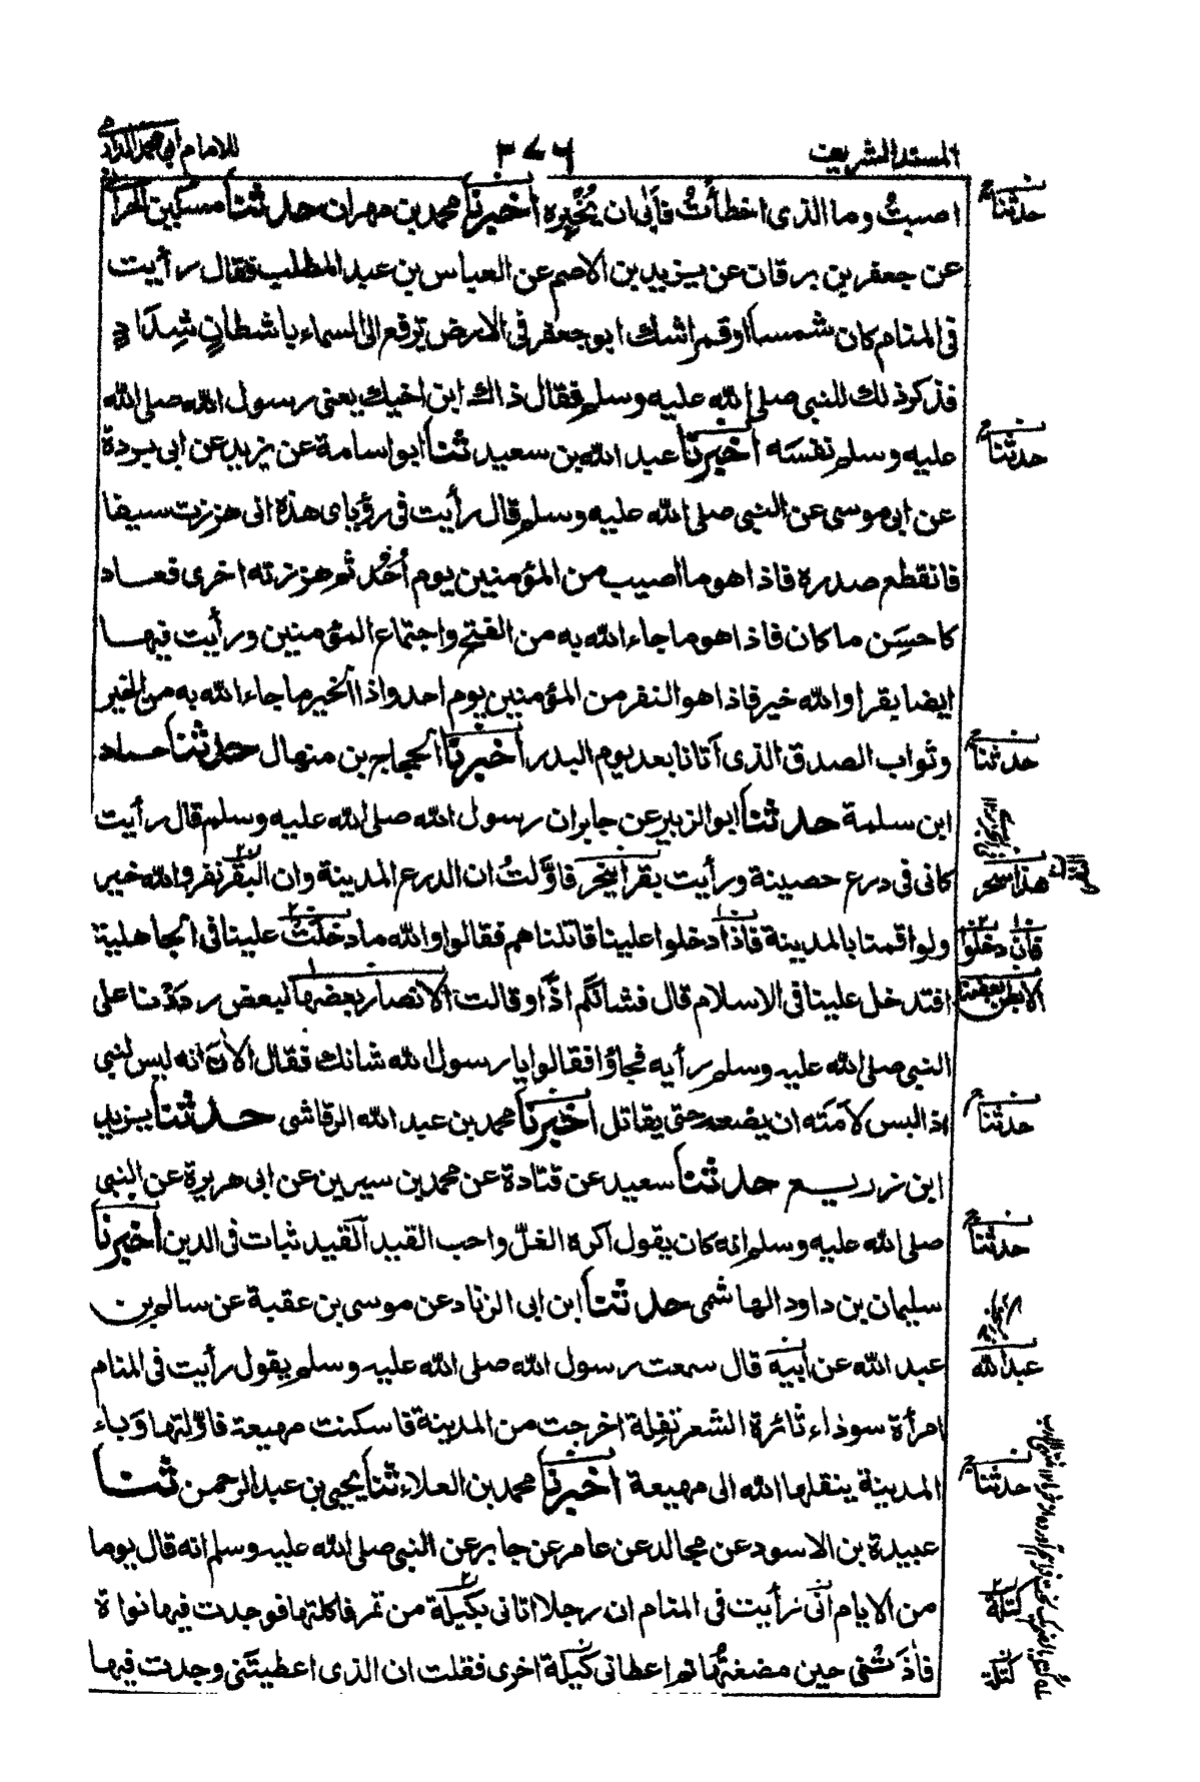 المسند الشريف
٢٧٦
للامام ابي محمد الدارمي
اصبتُ وما الذى اخطأتُ فأبى ان يُخْبِره أخبرنا محمد بن مهران حدثنا مسكين الحرانى
عن جعفر بن برقان عن يزيد بن الاصم عن العباس بن عبد المطلب فقال رأيت
فى المنام كان شمسا او قمرا شك ابو جعفر فى الارض ترفع الى السماء باشطانٍ شِدَادٍ
فذكر ذلك للنبى صلى الله عليه وسلم فقال ذاك ابن اخيك يعنى رسول الله صلى الله
عليه وسلم نفسَه أخبرنا عبد الله بن سعيد ثنا ابو اسامة عن بريد عن ابى بردة
عن ابى موسى عن النبى صلى الله عليه وسلم قال رأيت فى رؤياى هذه انى هززت سيفا
فانقطع صدره فاذا هو ما اصيب من المؤمنين يوم أُحُد ثم هززته اخرى فعاد
كاحسَنِ ما كان فاذا هو ما جاء الله به من الفتح واجتماع المؤمنين ورأيت فيها
ايضا بقرا والله خير فاذا هو النفر من المؤمنين يوم احد واذا الخير ما جاء الله به من الخير
وثواب الصدق الذى آتانا بعد يوم البدر أخبرنا الحجاج بن منهال حدثنا حماد
ابن سلمة حدثنا ابو الزبير عن جابر ان رسول الله صلى الله عليه وسلم قال رأيت
كانى فى درع حصينة ورأيت بقرا ينحر فاوَّلتُ ان الدرع المدينة وان البقر نفر والله خير
ولو اقمتا بالمدينة فاذا دخلوا علينا قاتلناهم فقالوا والله ما دخلَتْ علينا فى الجاهلية
افتدخل علينا فى الاسلام قال فشانكم اذًا وقالت الانصار بعضها لبعض رددْنا على
النبى صلى الله عليه وسلم رأيه فجاؤا فقالوا يا رسول الله شانك فقال الآن انه ليس لنبى
اذا لبس لَأمَته ان يضعه حتى يقاتل أخبرنا محمد بن عبد الله الرقاشى حدثنا يزيد
ابن زريع حدثنا سعيد عن قتادة عن محمد بن سيرين عن ابى هريرة عن النبى
صلى الله عليه وسلم انه كان يقول اكره الغلّ واحب القيد القيد ثبات فى الدين أخبرنا
سليمان بن داود الهاشمى حدثنا ابن ابى الزناد عن موسى بن عقبة عن سالم بن
عبد الله عن ابيه قال سمعت رسول الله صلى الله عليه وسلم يقول رأيت فى المنام
امرأة سوداء ثائرة الشعر تَفِلة اخرجت من المدينة فاسكنت مهيعة فاوّلتها وَباء
المدينة ينقلها الله الى مهيعة أخبرنا محمد بن العلاء ثنا يحيى بن عبد الرحمن ثنا
عبيدة بن الاسود عن مجالد عن عامر عن جابر عن النبى صلى الله عليه وسلم انه قال يوما
من الايام انّى رأيت فى المنام ان رجلا اتانى بكَيلَة من تمر فاكلتها فوجدت فيها نواة
فآذَتْنى حين مضغتُها ثم اعطانى كَيلَة اخرى فقلت ان الذى اعطيتَنى وجدت فيها
حدثنا
حدثنا
حدثنا
هذا سحر
فان دخلوا
حدثنا
حدثنا
عبد الله
حدثنا
كتلة
كتلة